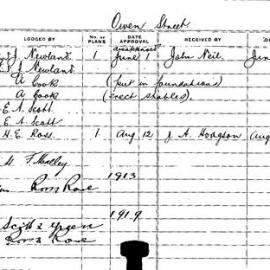 Owen Street
LODGED BY No. OF PLANS DATE APPROVAL RECEIVED BY
J. Newland 1 June 1 John Neil
J Newland
A Cook (put in foundations)
A Cook (Erect stables)
E. A. Scott
E. A. Scott
H. E. Ross 1 Aug 12 J. A. Hodgson
1913
Ross Rowe
1919
Scott & Green
Ross & Rowe